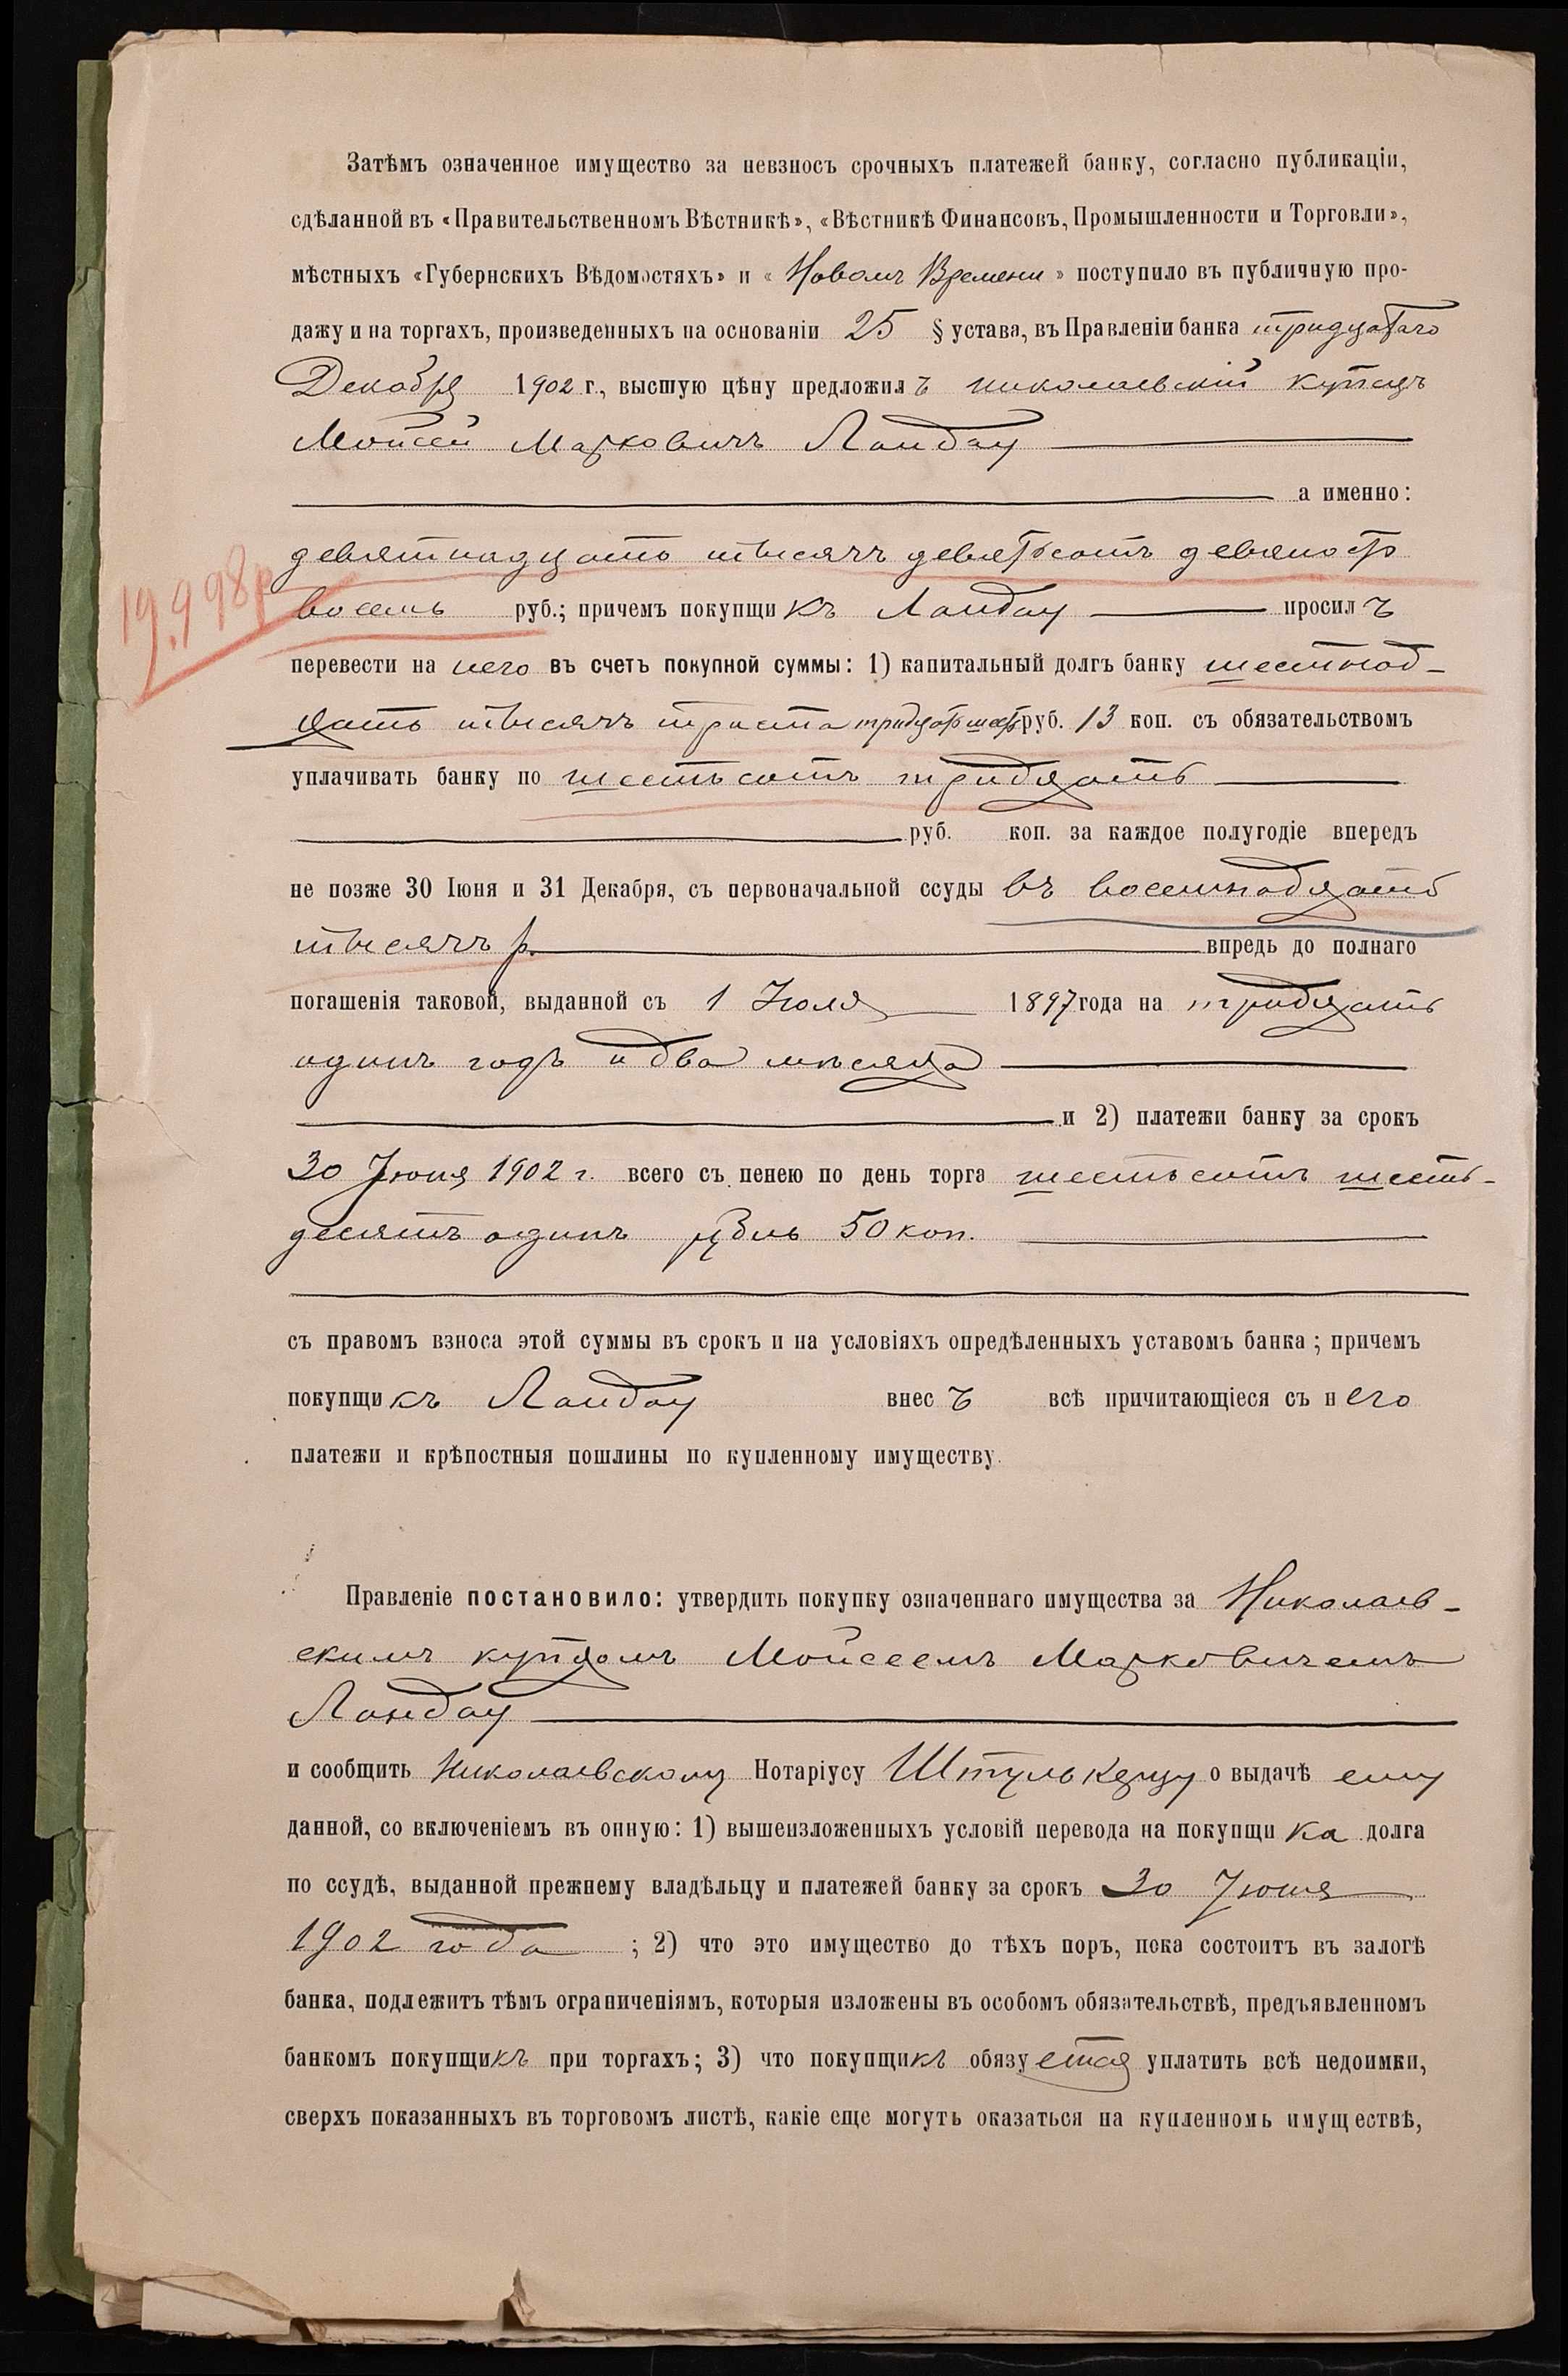 Затѣмъ означенное имущество за невзносъ срочныхъ платежей банку, согласно публикаціи,
сдѣланной въ «Правительственномъ Вѣстникѣ», «Вѣстникѣ Финансовъ, Промышленности и Торговли»,
мѣстныхъ «Губернскихъ Вѣдомостяхъ» и «Новомъ Времени» поступило въ публичную про-
дажу и на торгахъ, произведенныхъ на основаніи 25 § устава, въ Правленіи банка тридцатаго
Декабря 1902 г., высшую цѣну предложилъ николаевскій купецъ
Мойсей Марковичъ Ландау
а именно:
девятнадцать тысячъ девятьсотъ девяносто
19.998 р
восемь руб.; причемъ покупщикъ Ландау просилъ
перевести на него въ счетъ покупной суммы: 1) капитальный долгъ банку шестнад-
цать тысячъ триста тридцать шесть руб. 13 коп. съ обязательствомъ
уплачивать банку по шестьсотъ тридцать
руб. коп. за каждое полугодіе впередъ
не позже 30 Іюня и 31 Декабря, съ первоначальной ссуды въ восемнадцать
тысячъ р. впредь до полнаго
погашенія таковой, выданной съ 1 Іюля 1897 года на тридцать
одинъ годъ и два мѣсяца
и 2) платежи банку за срокъ
30 Іюня 1902 г. всего съ пенею по день торга шестьсотъ шесть-
десятъ одинъ рубль 50 коп.
съ правомъ взноса этой суммы въ срокъ и на условіяхъ опредѣленныхъ уставомъ банка; причемъ
покупщикъ Ландау внесъ всѣ причитающіеся съ него
платежи и крѣпостныя пошлины по купленному имуществу.
Правленіе постановило: утвердить покупку означеннаго имущества за Николаев-
скимъ купцомъ Мойсеемъ Марковичемъ
Ландау
и сообщить Николаевскому Нотаріусу Штулькерцу о выдачѣ ему
данной, со включеніемъ въ оную: 1) вышеизложенныхъ условій перевода на покупщика долга
по ссудѣ, выданной прежнему владѣльцу и платежей банку за срокъ 30 Іюня
1902 года ; 2) что это имущество до тѣхъ поръ, пока состоитъ въ залогѣ
банка, подлежитъ тѣмъ ограниченіямъ, которыя изложены въ особомъ обязательствѣ, предъявленномъ
банкомъ покупщикъ при торгахъ; 3) что покупщикъ обязуется уплатить всѣ недоимки,
сверхъ показанныхъ въ торговомъ листѣ, какіе еще могутъ оказаться на купленномъ имуществѣ,